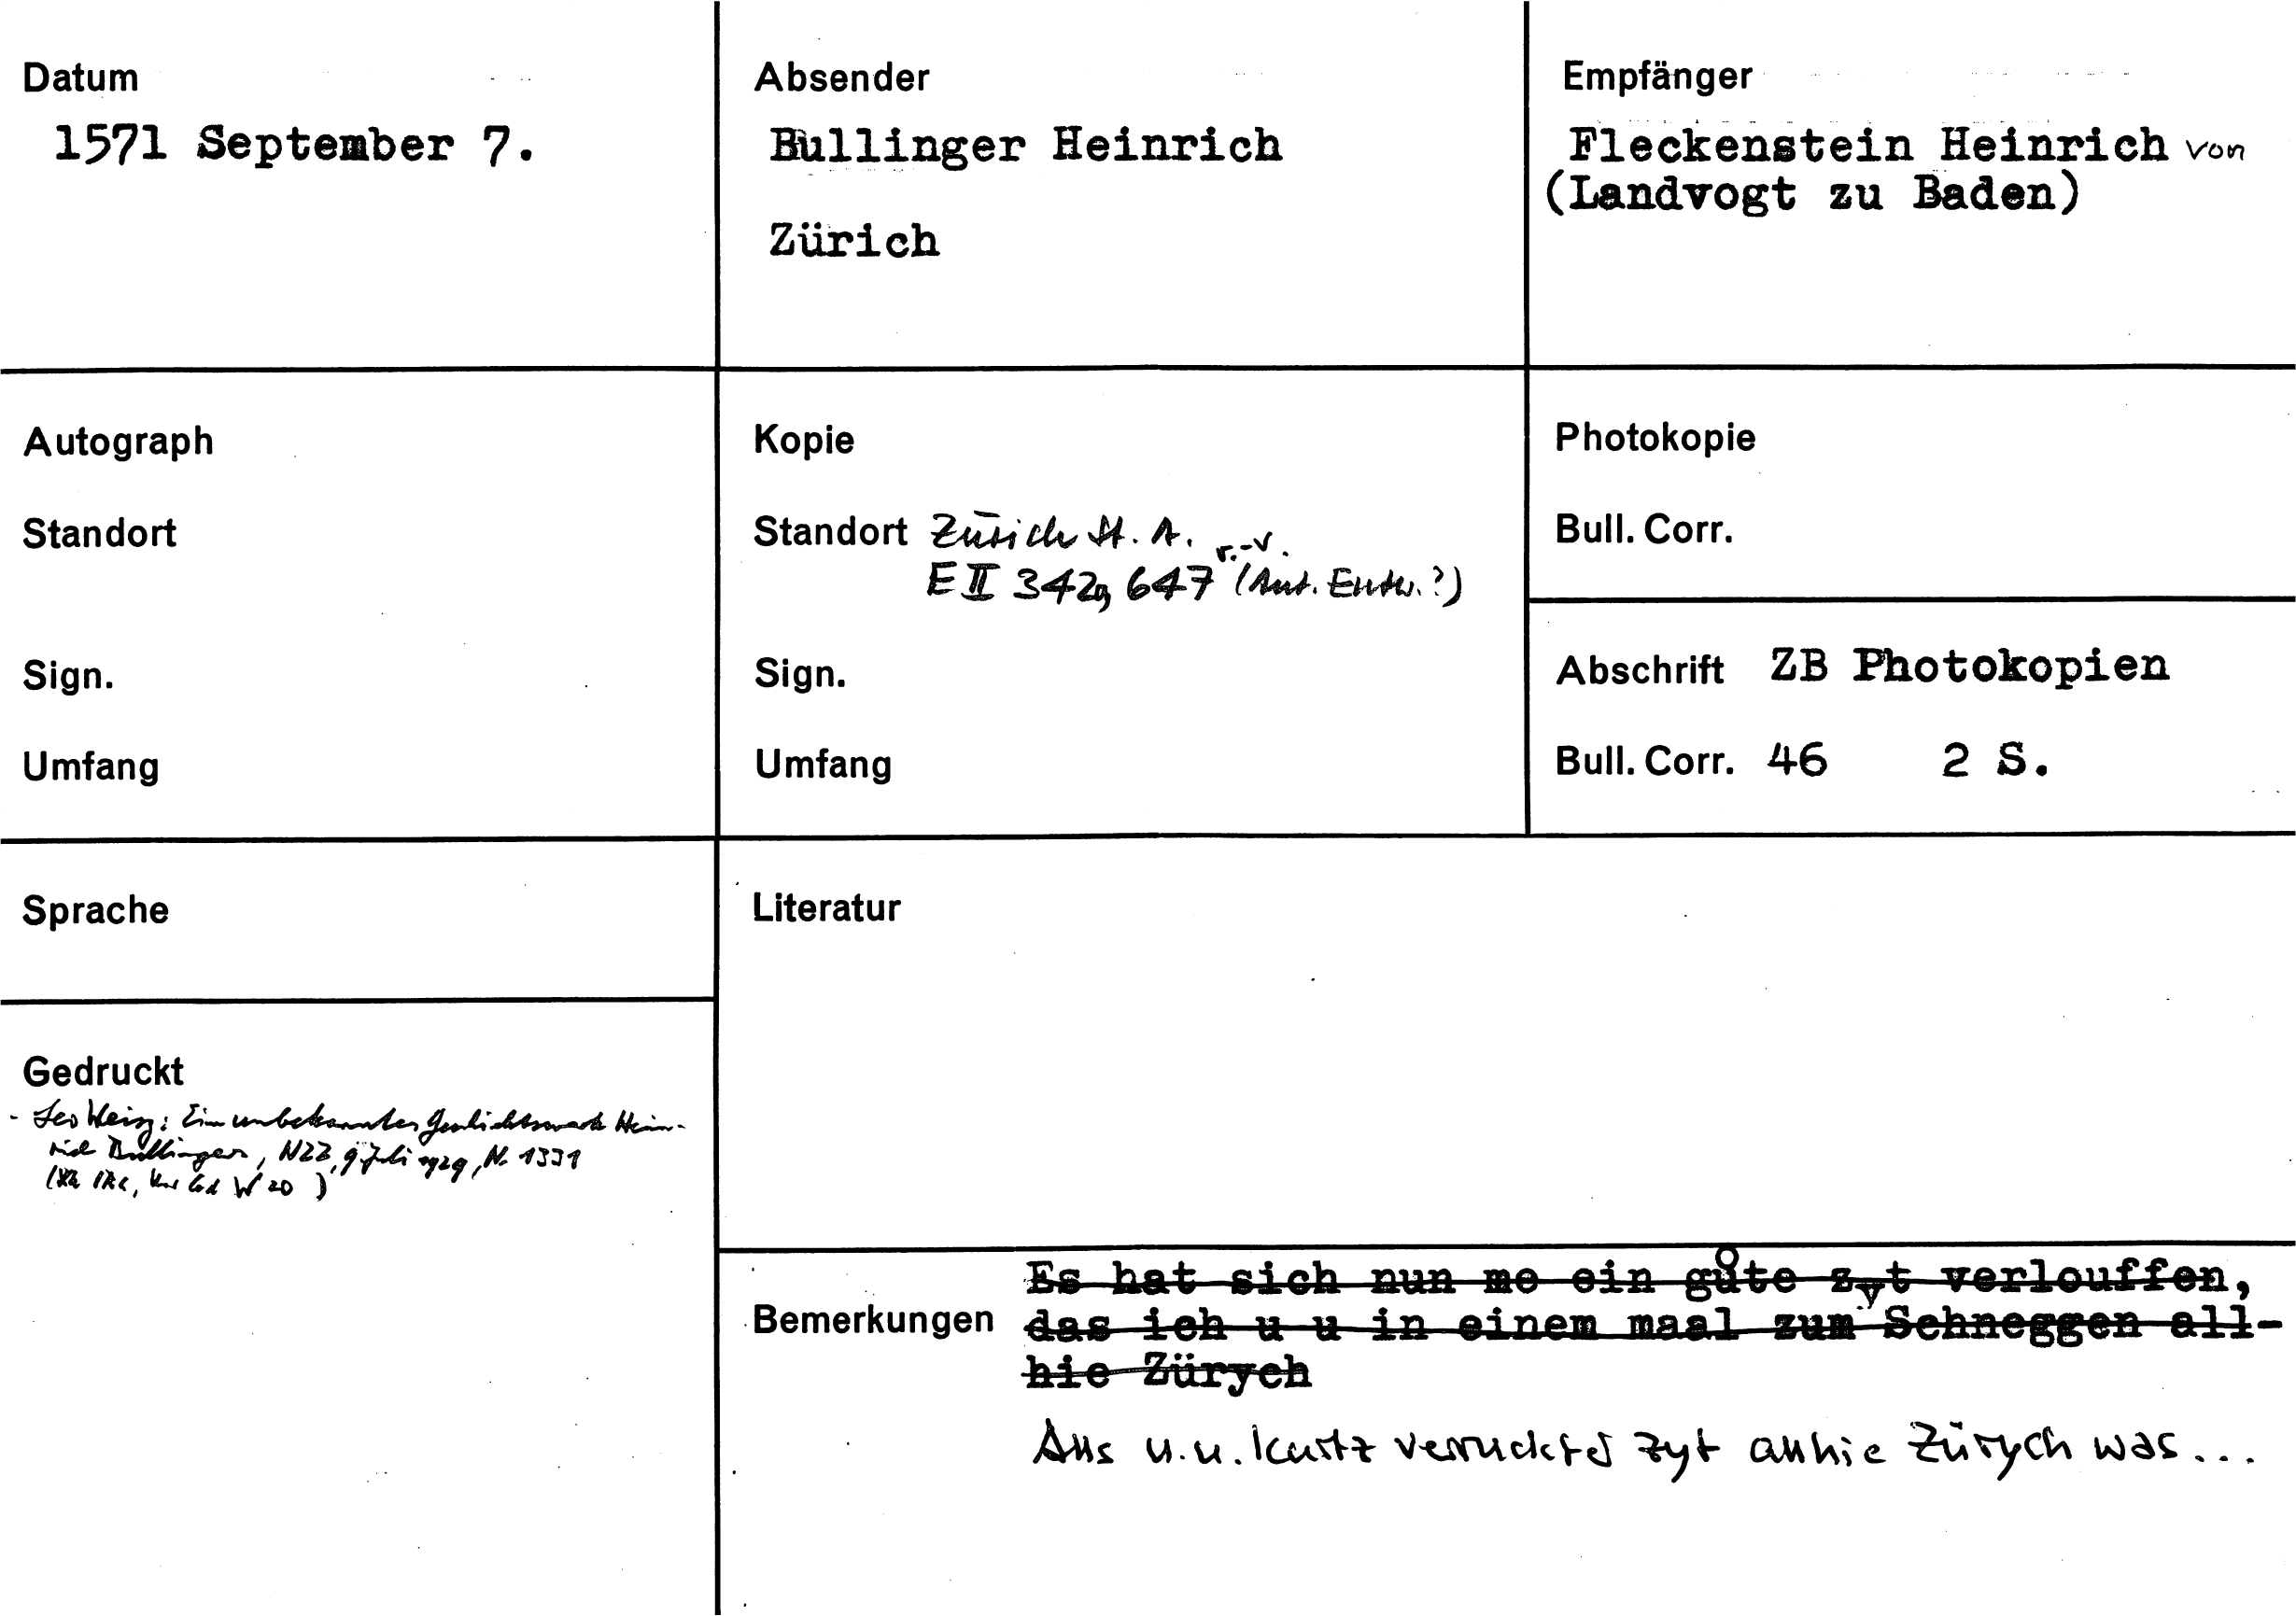 Datum
1571 September 7.
Absender
Bullinger Heinrich
Zürich
Empfänger
Fleckenstein Heinrich von
(Landvogt zu Baden)
Autograph
Standort
Sign.
Umfang
Kopie
Standort Zürich St. A.
E II 342a, 647 r.-v. (Aut. Entw.?)
Sign.
Umfang
Photokopie
Bull. Corr.
Abschrift ZB Photokopien
Bull. Corr. 46 2 S.
Sprache
Gedruckt
- Leo Weisz: Ein unbekanntes Geschichtswerk Hein-
rich Bullingers, NZZ, 9. Juli 1929, Nr. 1331
W 20)
Literatur
Bemerkungen
Es hat sich nun me ein gůte zyt verlouffen,
das ich u u in einem maal zum Schneggen all-
hie Zürych
Alls u. u. kurtz verruckter zyt allhie Zürych was...